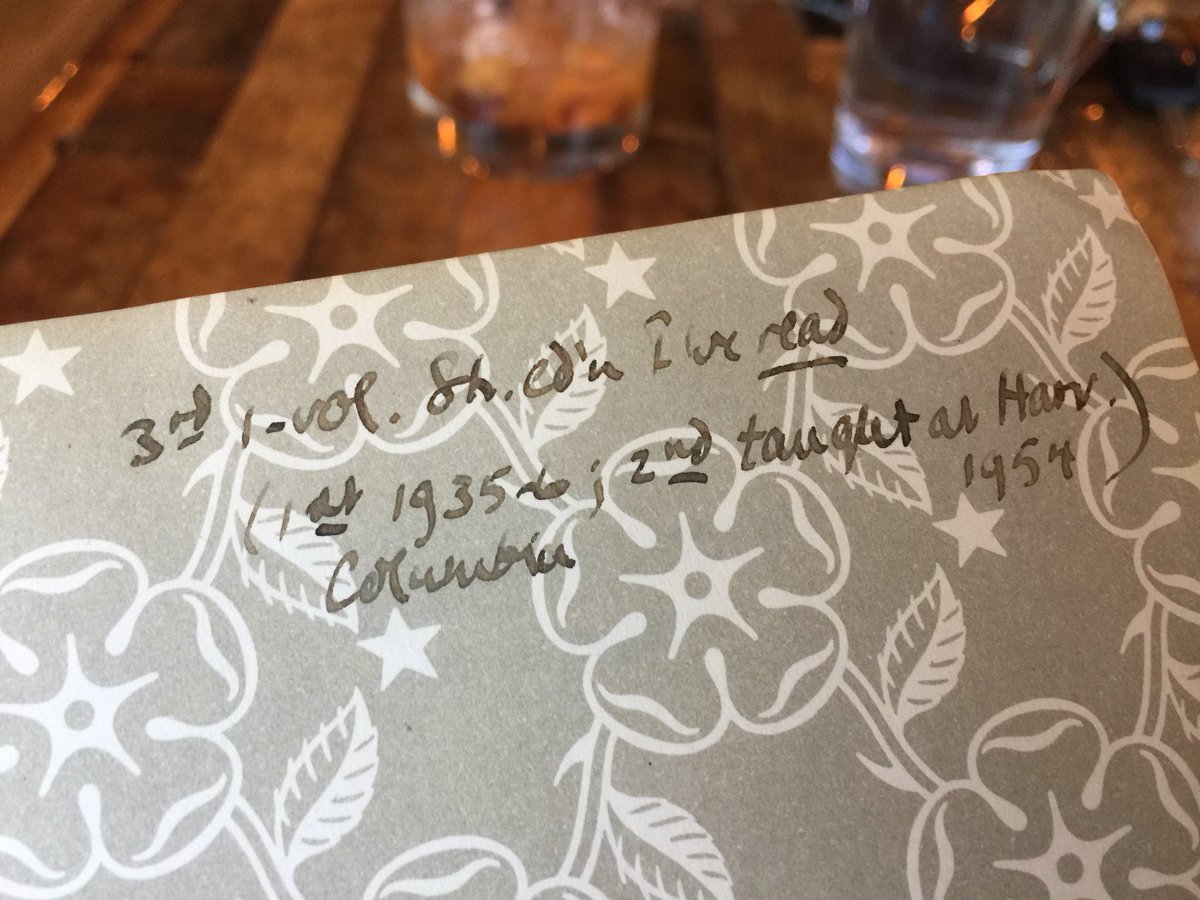 3rd 1-vol. Sh. ed'n I've read
(1st 1935-6; 2nd taught at Harv.
Columbia 1954)